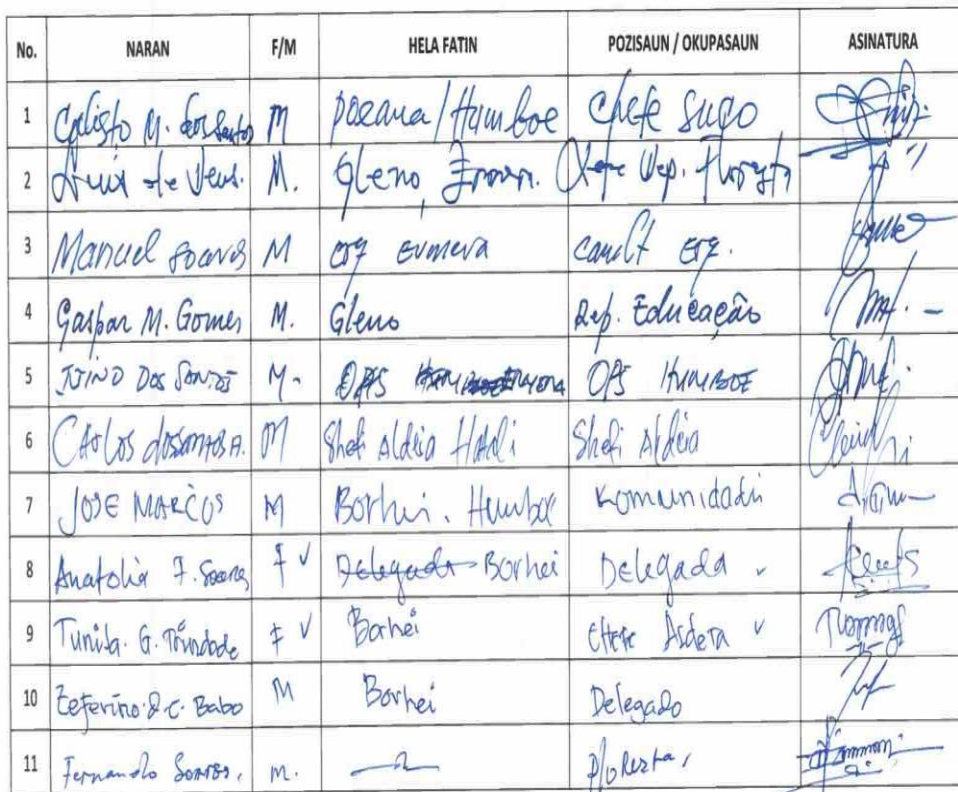 No. NARAN F/M HELA FATIN POZISAUN / OKUPASAUN ASINATURA
1 Calisto M. dos Santos M Poeana / Humboe Chefe Suco
2 M. Gleno, Chefe Dep. Floresta
3 Manuel Soares M Ermera
4 Gaspar M. Gomes M. Gleno Dep. Educação
5 Dos Santos M. OPS OPS HUMBOE
6 Carlos M Shefi Aldeia Hatali Shefi Aldeia
7 JOSE MARCOS M Borhei, Humboe Komunidadi
8 Anatolia F. Soares F ✓ Delegada Borhei Delegada ✓
9 Tunita. G. Trindade F ✓ Borhei Chefe Aldeia ✓
10 Zeferino. d. c. Babo M Borhei Delegado
11 Fernando Soares, M. Floresta,